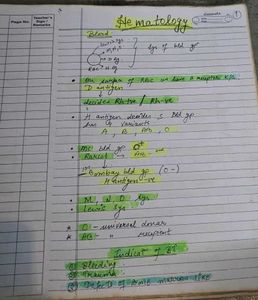 Page No.
Teacher's Sign / Remarks
Hematology
Blood
Sys of bld gp
On surface of RBC we have A receptor k/a
D antigen
decides Rh+ve / Rh-ve
H antigen decides bld gp
has 4 variants
A, B, AB, O
MC bld gp O+
Rarest → AB-ve
Bombay bld gp (O-)
H antigen -ve
M, N, D sys
Lewis sys
O - universal donor
AB - " recipient
Indicatn of BT
① Bleeding
② Trauma